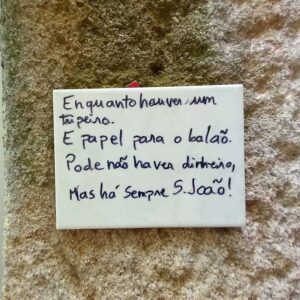 Enquanto houver um
tripeiro.
E papel para o balão.
Pode não haver dinheiro,
Mas há sempre S. João!